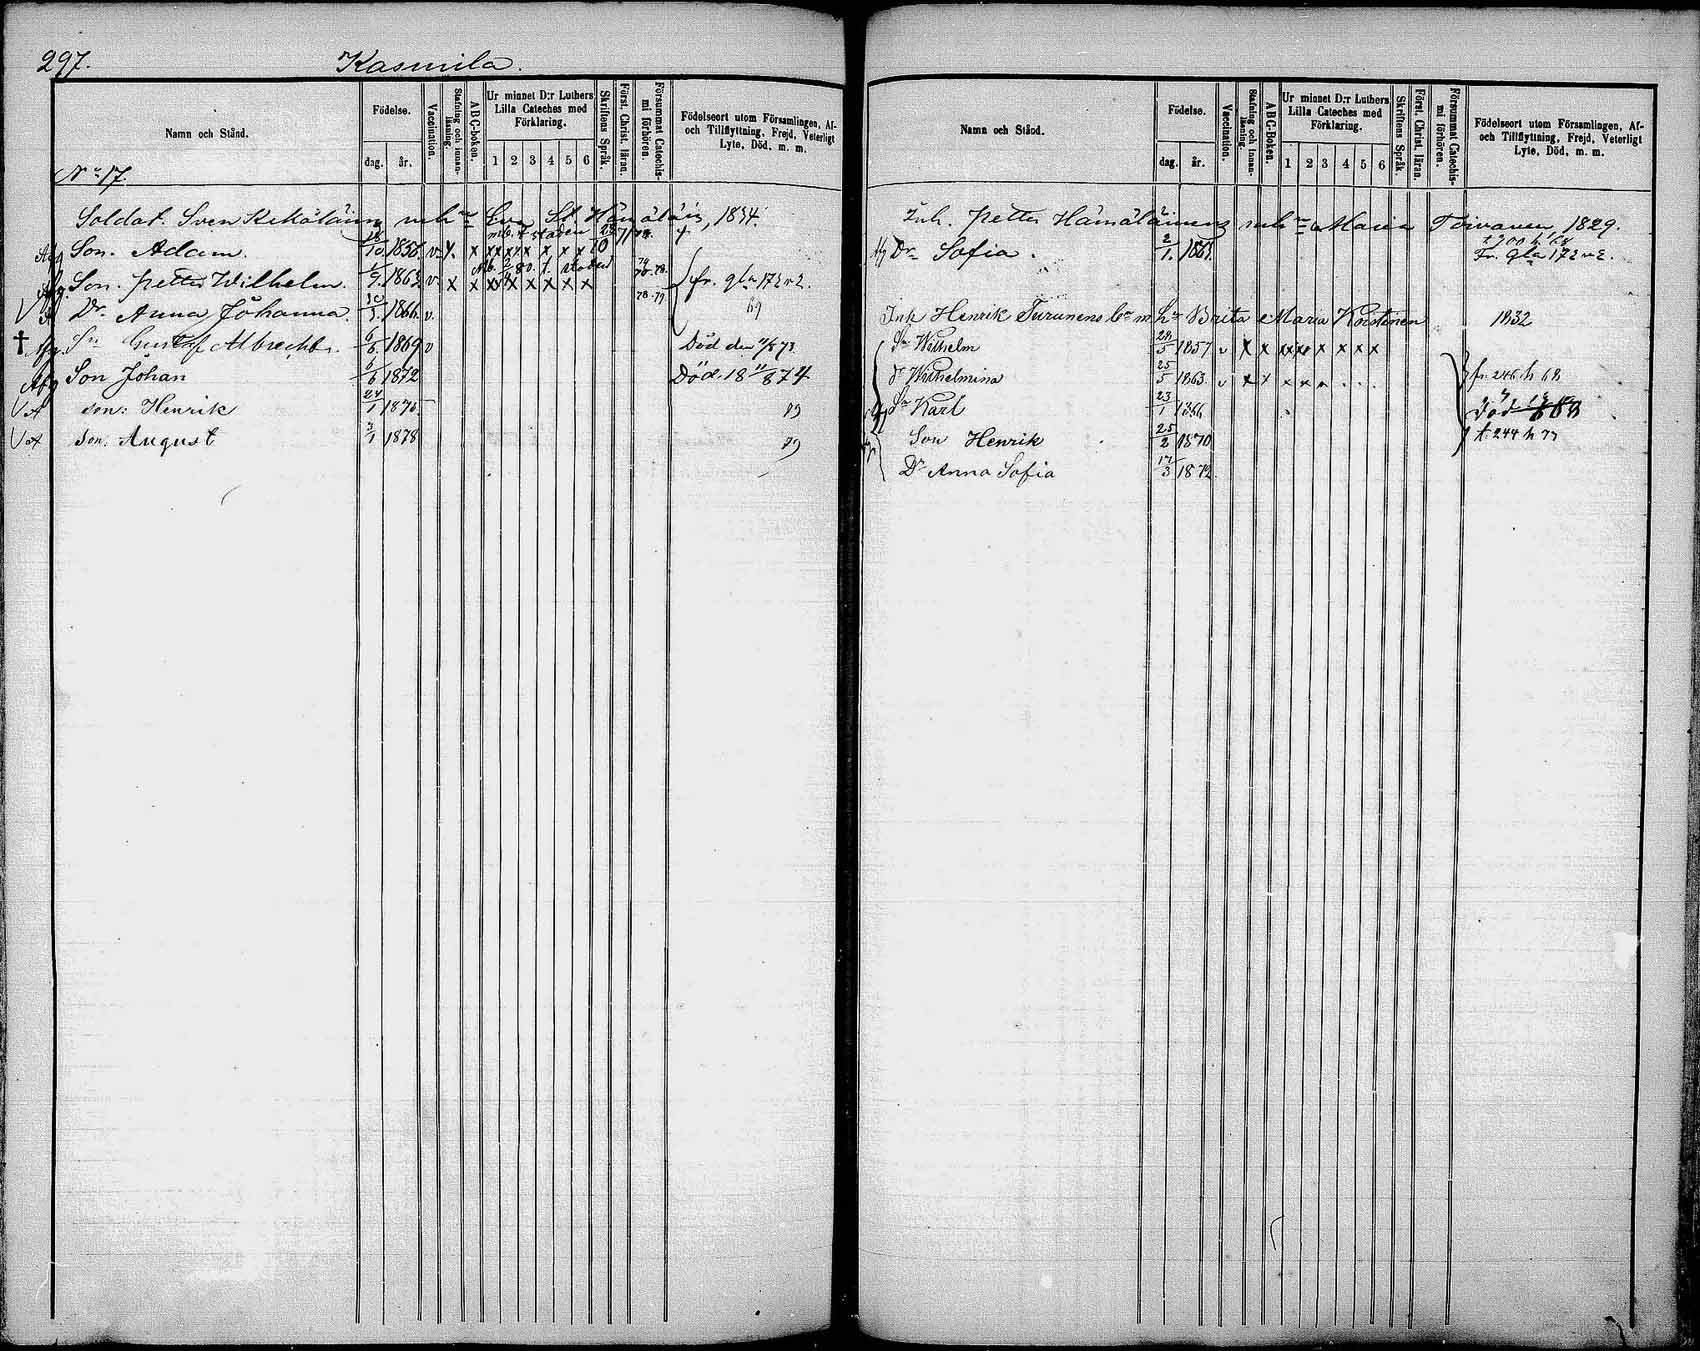 297. Kasurila.
Namn och Stånd.
Födelse.
dag. år.
Vaccination.
Stafning och innanläsning.
ABC-boken.
Ur minnet D:r Luthers Lilla Cateches med Förklaring.
1 2 3 4 5 6
Skriftens Språk.
Förs. Christ. läran.
Försummat Catechismi förhören.
Födelseort utom Församlingen, Af- och Tillflyttning, Frejd, Veterligt Lyte, Död, m. m.
N:o 17.
Soldat. Sven 1834.
Son. Adam. 1856. v. x x x x x x x x
Son. Petter Wilhelm. 1863. v. x x x x x x x x fr. gla 172 v 2.
Dr. Anna Johanna. 1866. v. 89
† Sn Gustaf Albrecht. 6/6 1869 v Död den 73
Son Johan 6/6 1872 Död. 18 11/8 74
Son: Henrik 24/1 1875 89
Son. August 3/1 1878 89
Namn och Stånd.
Födelse.
dag. år.
Vaccination.
Stafning och innanläsning.
ABC-Boken.
Ur minnet D:r Luthers Lilla Cateches med Förklaring.
1 2 3 4 5 6
Skriftens Språk.
Först. Christ. läran.
Försummat Catechismi förhören.
Födelseort utom Församlingen, Af- och Tillflyttning, Frejd, Veterligt Lyte, Död, m. m.
Inh. Petter Hämäläinens Maria Toivanen 1829.
Dr Sofia. 2/1. 1861. Fr. gla 172 v 2.
Inh Henrik Turunens Brita Maria Korstinen 1832
Sn Wilhelm 24/5 1857 v x x x x x x x x
Dr Wilhelmina 25/5 1863. v x x x x fr. 246 h 68
Sn Karl 23/1 1866 Död 68
Son Henrik 25/2 1870 t. 244 h 73
Dr Anna Sofia 17/3 1872.